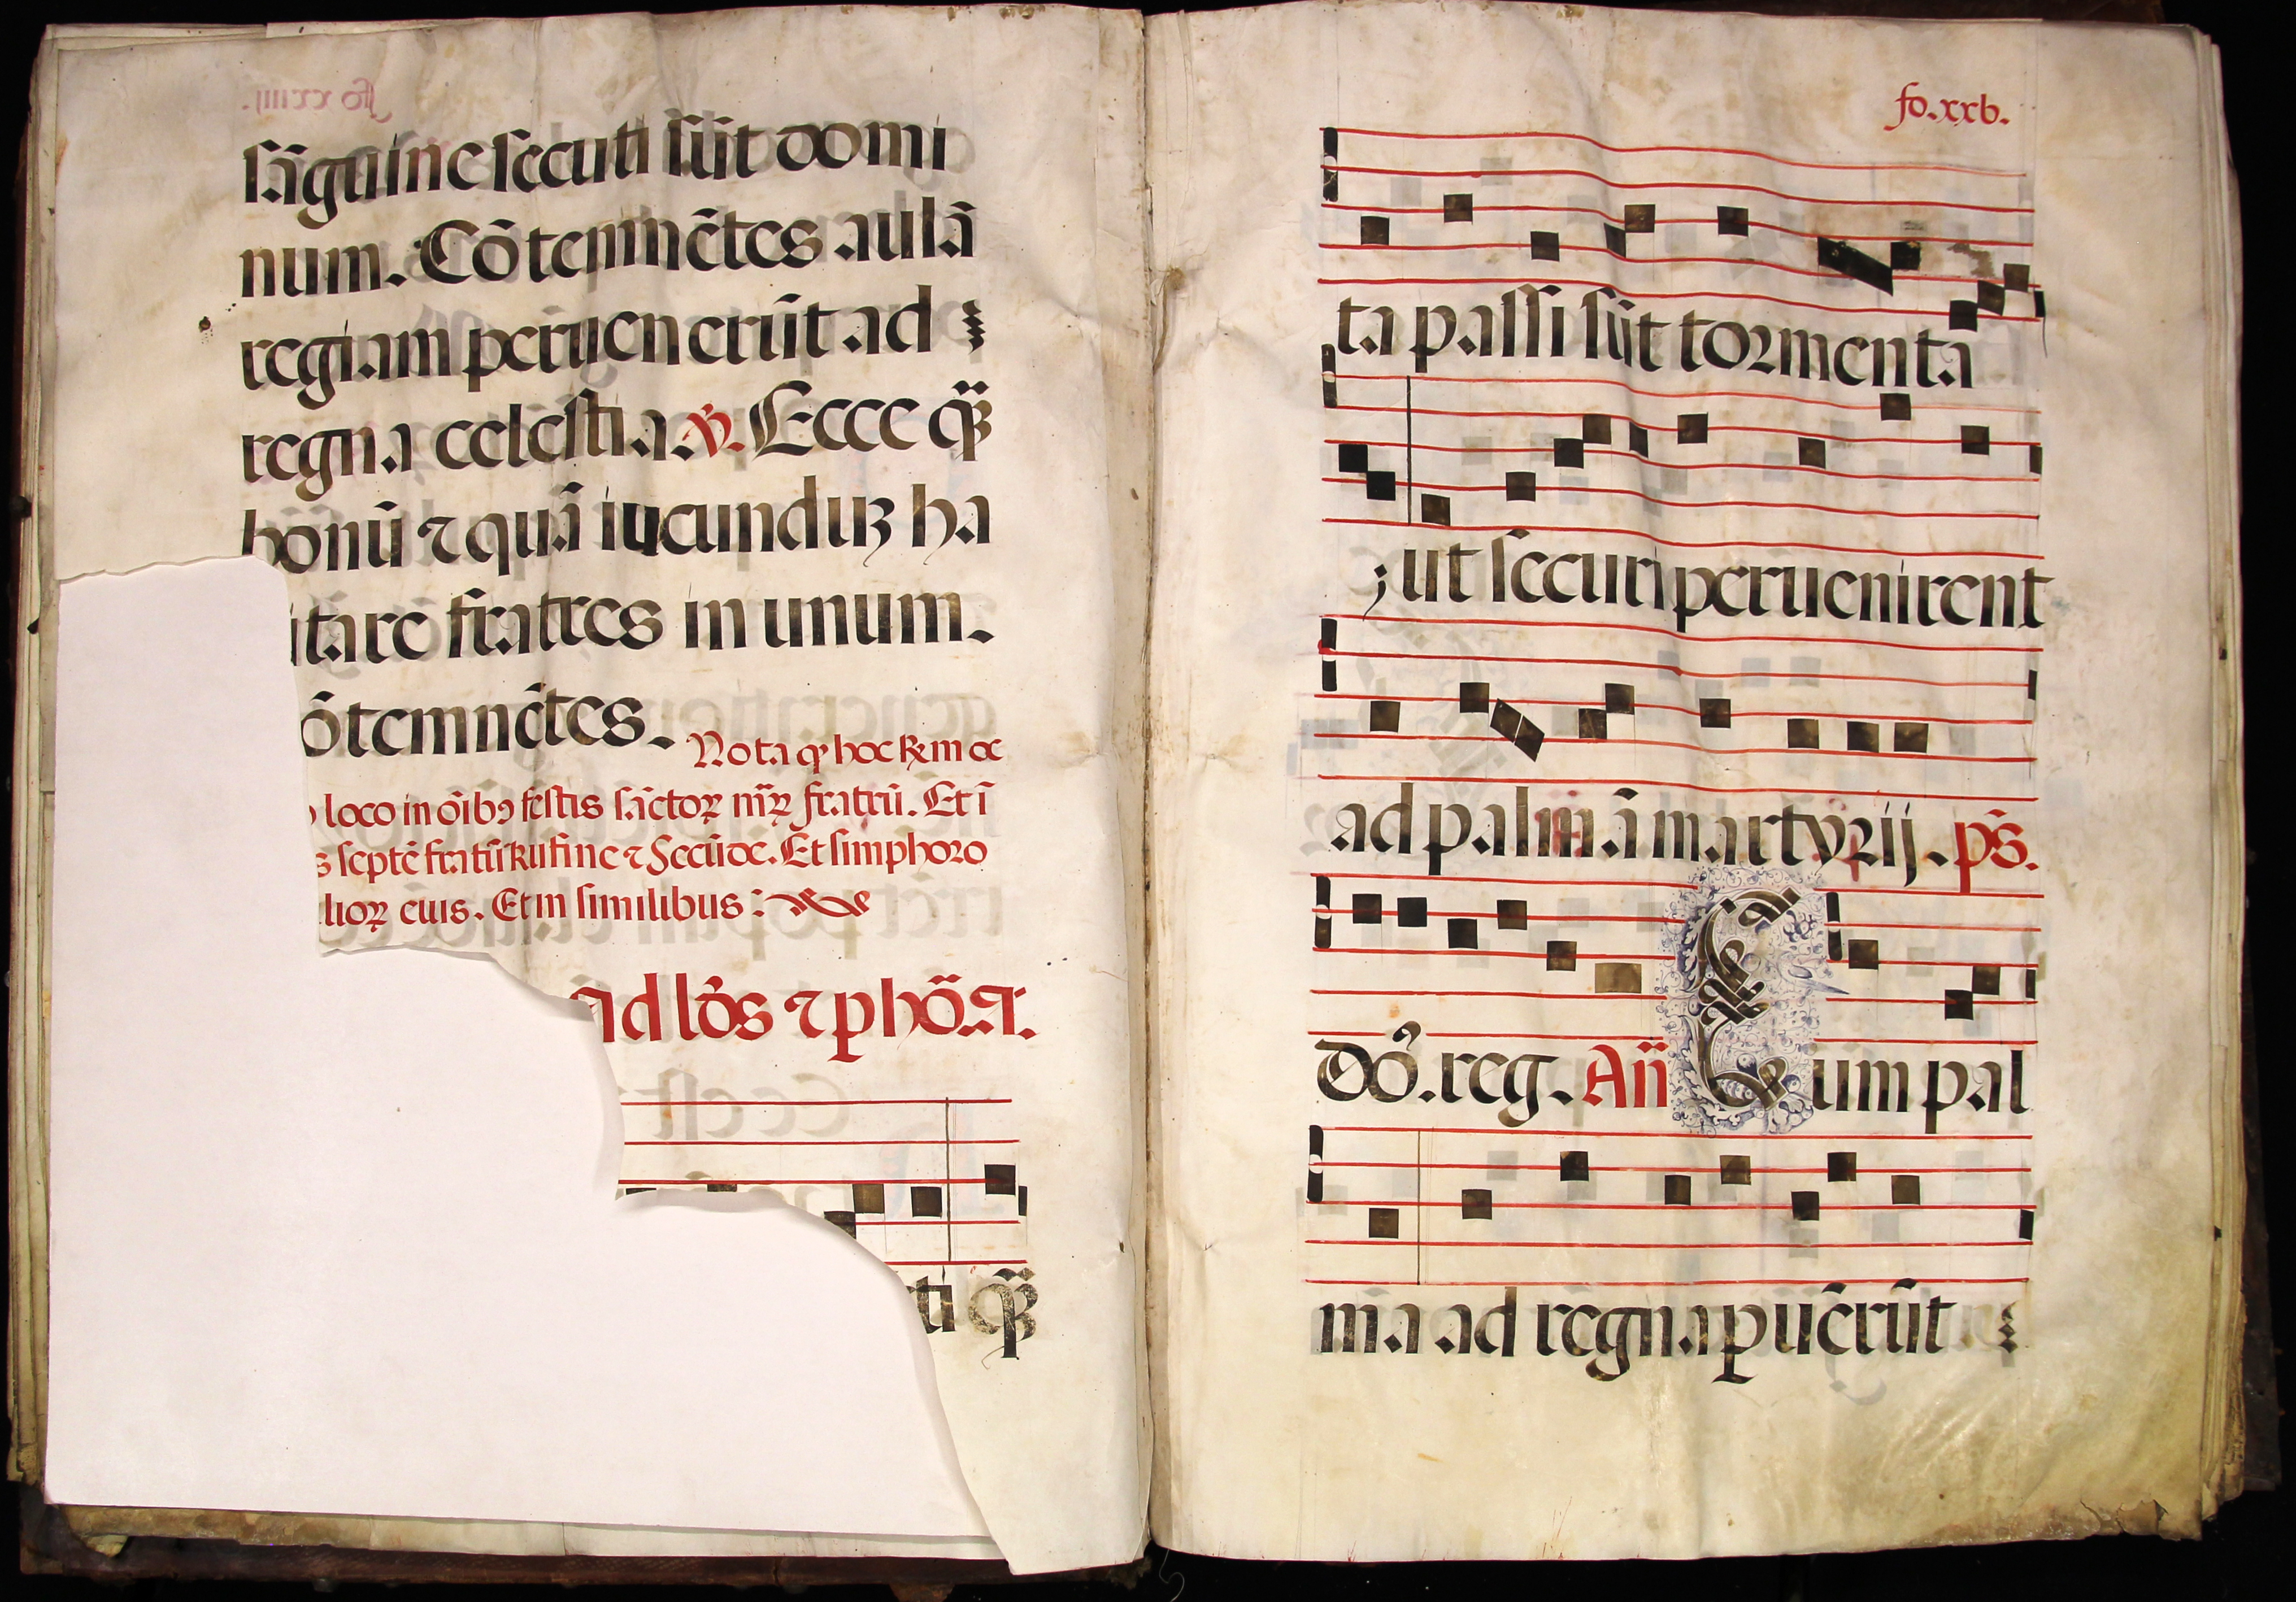 sāguine secuti sūt domi
num. Cōtemnētes aulā
regiam peruenerūt ad
regna celestia. ℣. Ecce q̃
bonū ⁊ quā iucunduȝ ha
itare fratres in unum.
ōtemnētes.
Nota qꝫ hoc ℞m dē
loco in oībꝯ festis sāctoꝝ mr̄ꝝ fratrū. Et ī
s septē fratrū Rufine ⁊ Secūde. Et simphoro
lioꝝ eius. Et in similibus :
Ad lōs ⁊ phō.a.
ti q̃
fo. xxv.
ta passi sūt tormenta
; ut securi peruenirent
ad palmā martyrij. p̄s.
Dō. reg. Añ Cum pal
ma ad rēgna puēcrūt